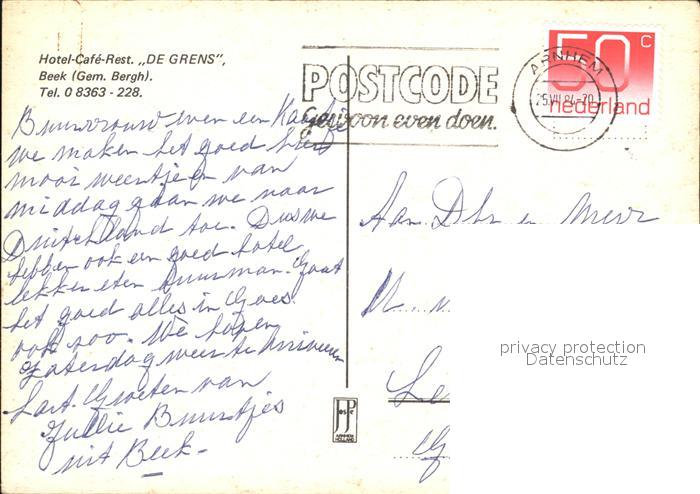 Hotel-Café-Rest. „DE GRENS”,
Beek (Gem. Bergh).
Tel. 0 8363 - 228.
Buurvrouw even een Kaartje
we maken het goed heel
mooi weertje en van
middag gaan we naar
Duitschland toe. Dus we
hebben ook een goed hotel
lekker eten buurman. Gaat
het goed alles in Goes
ook zoo. We hopen
zaterdag weer te arriveeren
Hart. Groeten van
Jullie Buurtjes
uit Beek-
POSTCODE
Gewoon even doen.
ARNHEM
25.VII.84-20
50 C
nederland
Aan Dhr en Mevr
privacy protection
Datenschutz
JosPé
ARNHEM
HOLLAND